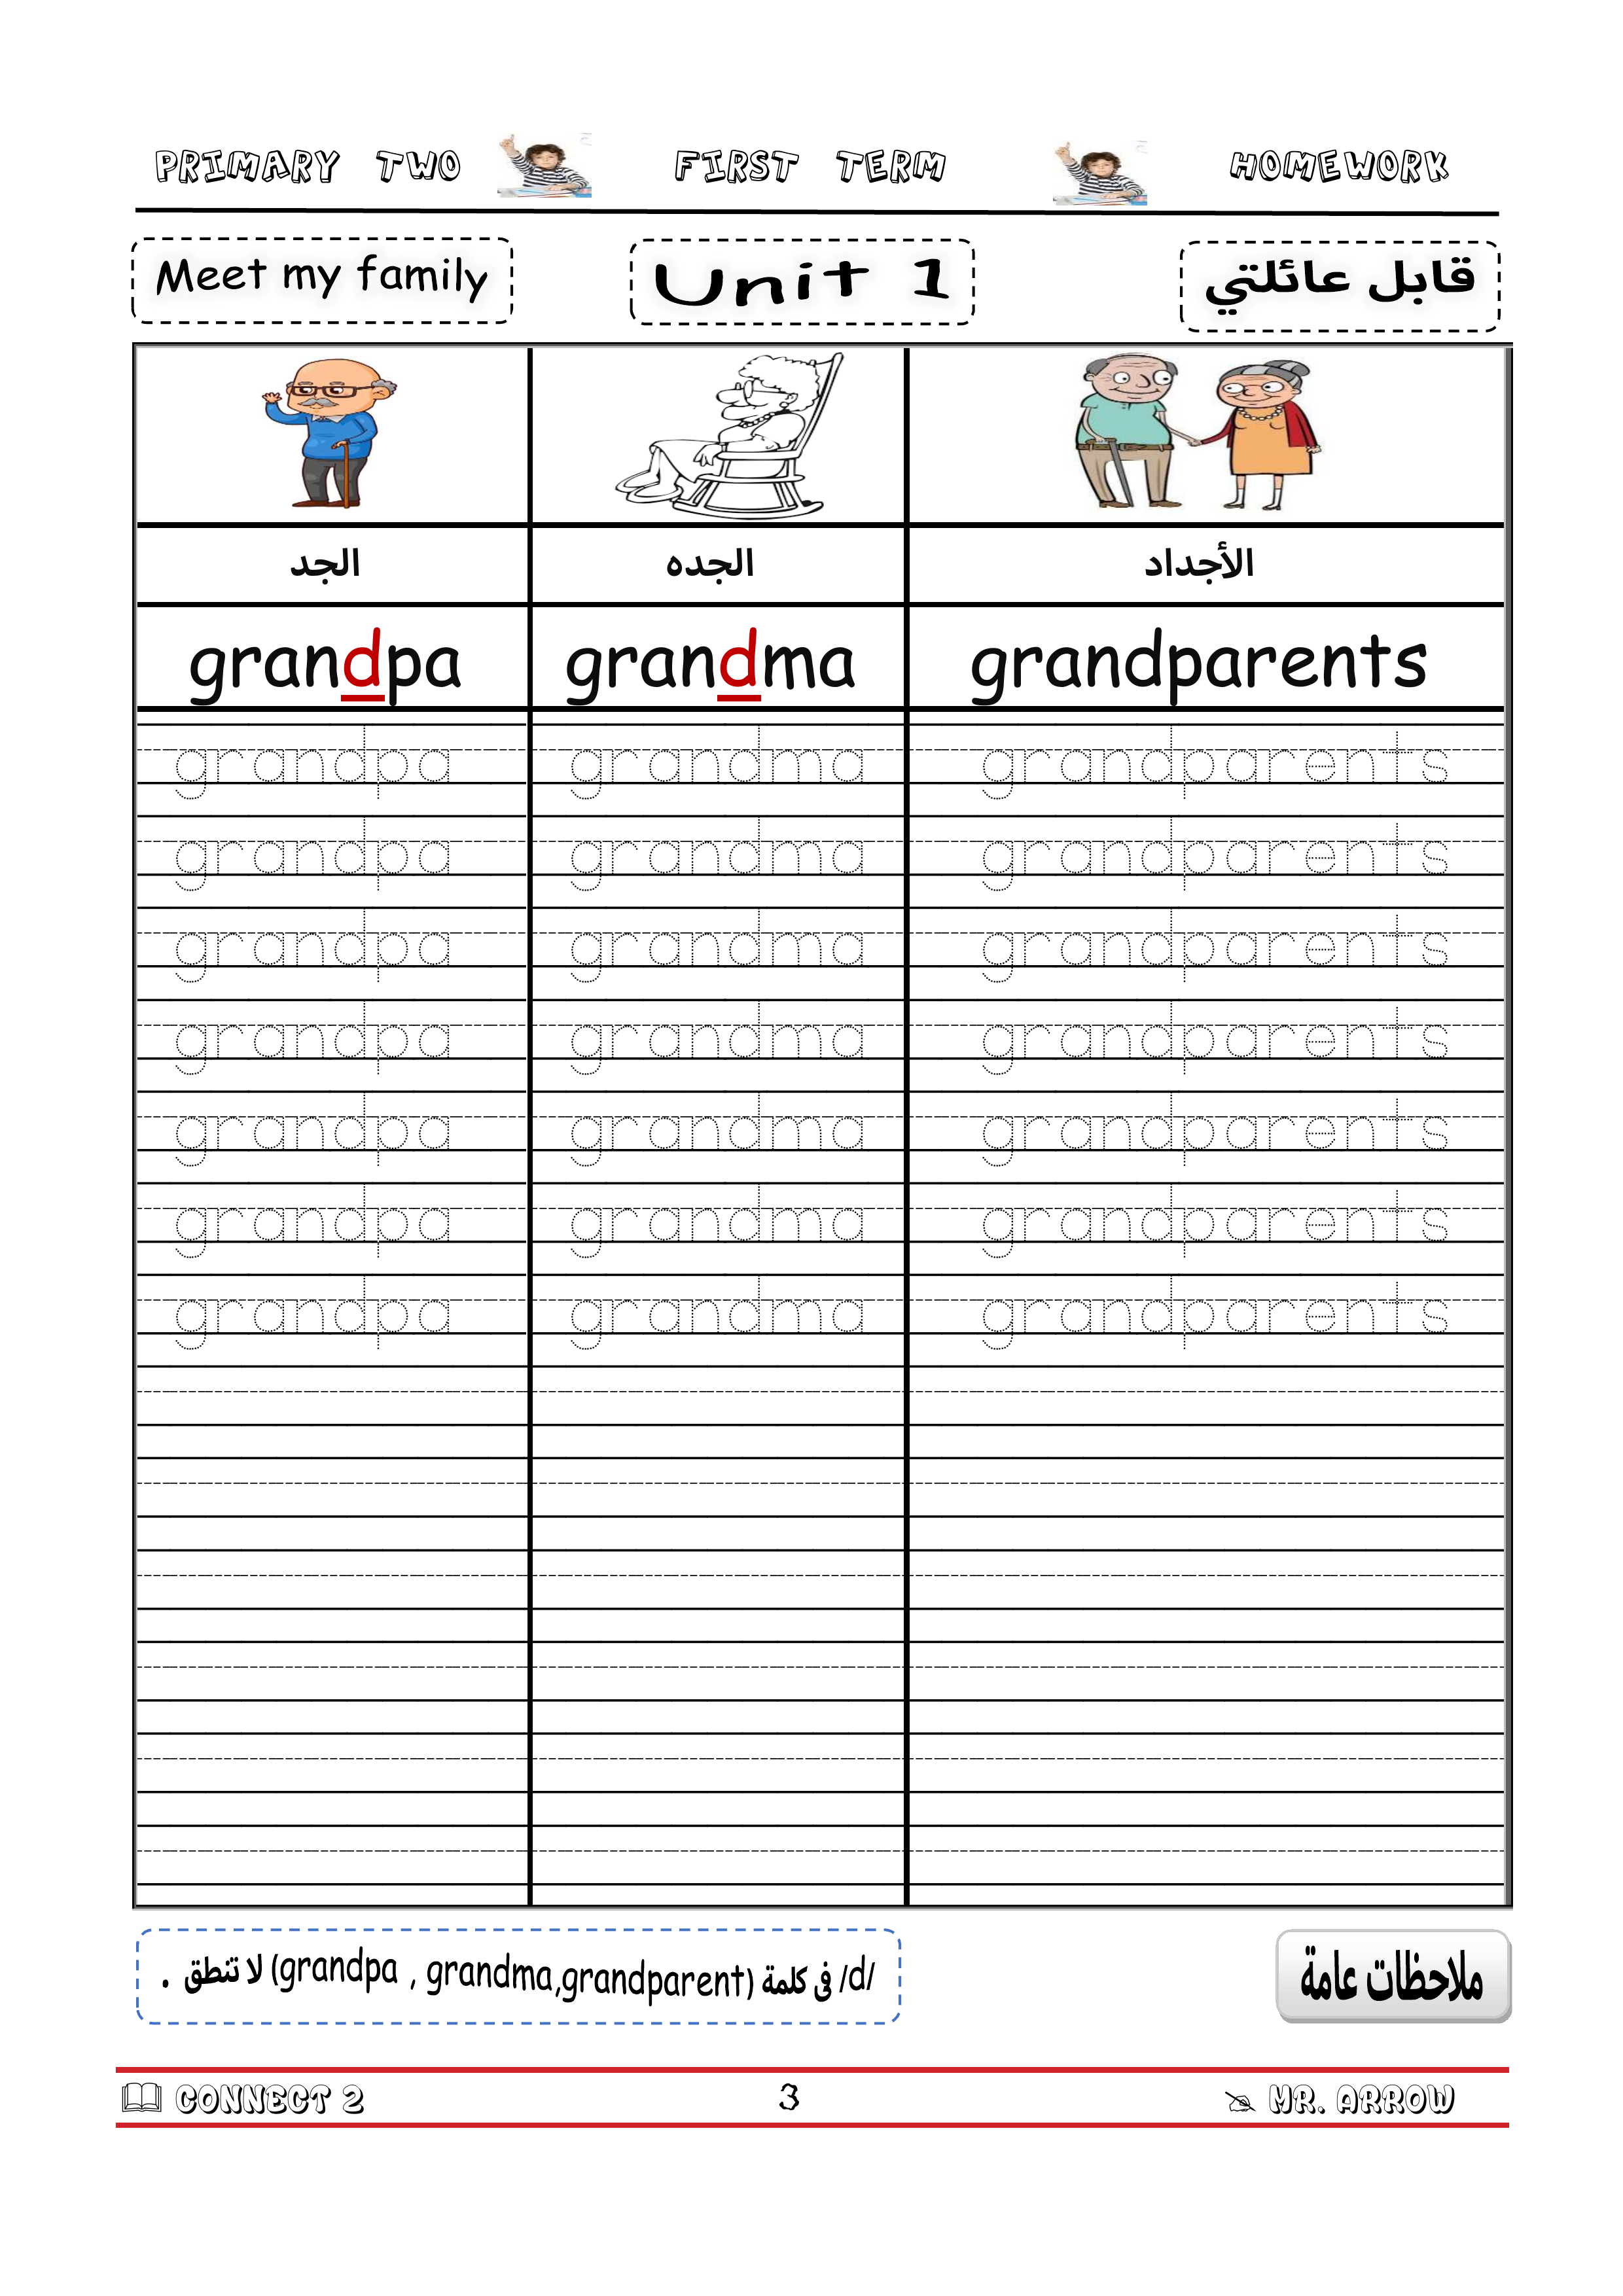 PRIMARY TWO FIRST TERM HOMEWORK
Meet my family Unit 1 قابل عائلتي
الجد الجده الأجداد
grandpa grandma grandparents
grandpa grandma grandparents
grandpa grandma grandparents
grandpa grandma grandparents
grandpa grandma grandparents
grandpa grandma grandparents
grandpa grandma grandparents
grandpa grandma grandparents
ملاحظات عامة
/d/ فى كلمة (grandpa , grandma,grandparent) لا تنطق .
CONNECT 2 3 MR. ARROW